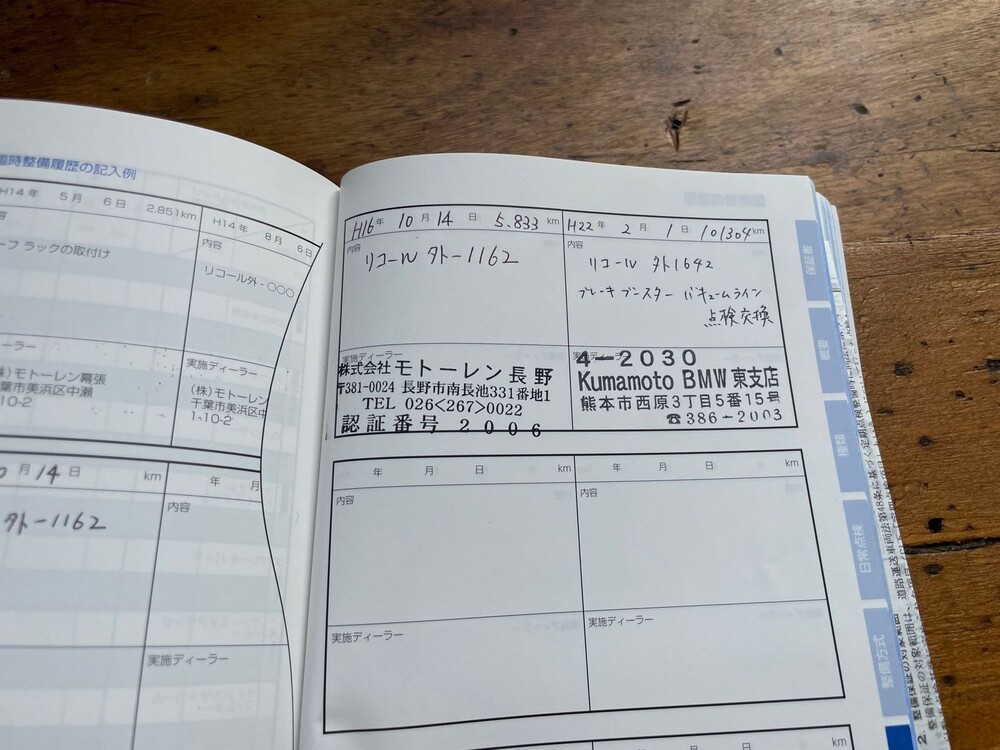 臨時整備履歴の記入例
H14年 5月 6日 2,851km
H14年 8月 6日
ーフ ラックの取付け
内容
リコール外-○○○
ーラー
株)モトーレン幕張
葉市美浜区中瀬
10-2
実施ディーラー
(株)モトーレン
千葉市美浜区中
1-10-2
0月14日 km
年 月
外-1162
内容
実施ディーラー
H16年 10月 14日 5.833km
内容
リコール 外-1162
実施ディーラー
株式会社モトーレン長野
〒381-0024 長野市南長池331番地1
TEL 026<267>0022
認証番号 2006
H22年 2月 1日 101304km
内容
リコール 外1642
ブレーキブースター バキュームライン
点検交換
4-2030
Kumamoto BMW 東支店
熊本市西原3丁目5番15号
☎386-2003
年 月 日 km
内容
実施ディーラー
年 月 日 km
内容
実施ディーラー
km
km
保証書
概要
種類
日常点検
整備方式
2. 整備保証の対象範囲